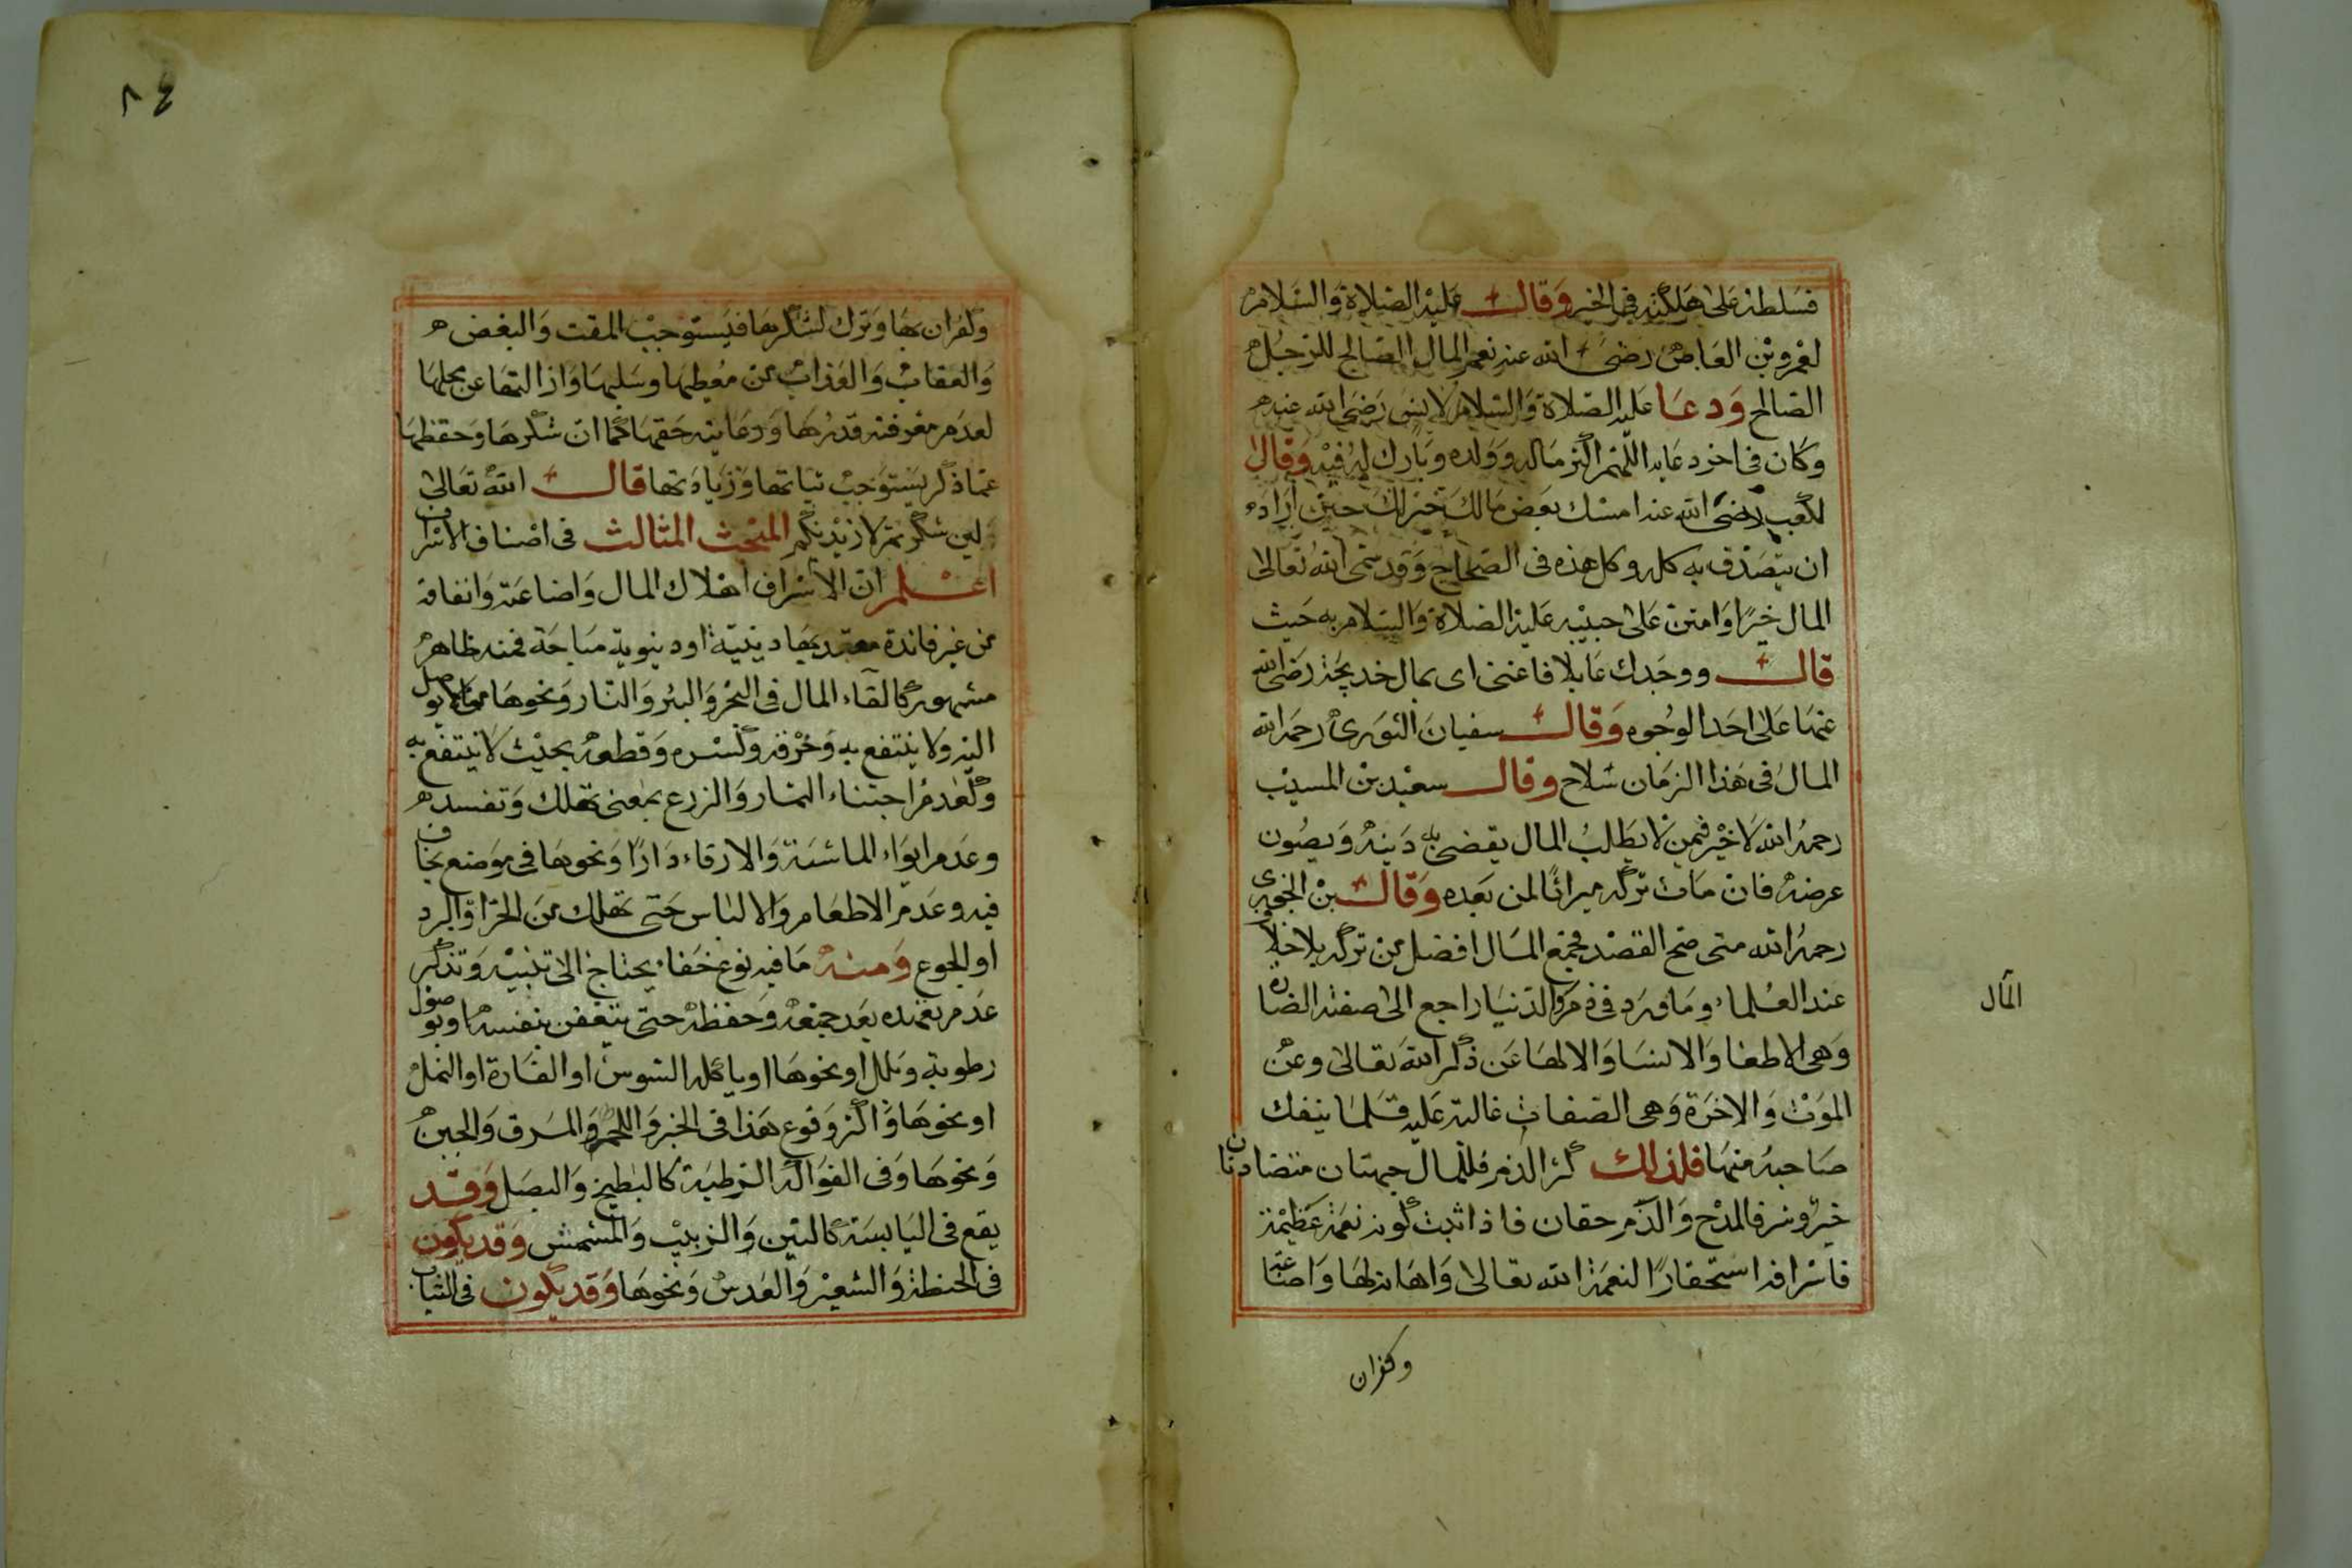 فسلطه على هلكته في الخير وقال عليه الصلاة والسلام
لعمرو بن العاص رضي الله عنه نعم المال الصالح للرجل
الصالح ودعا عليه الصلاة والسلام لانس رضي الله عنه
وكان في اخر دعايه اللهم اكثر ماله وولده وبارك له فيه وقال
لكعب رضي الله عنه امسك بعض مالك خير لك حين اراد
ان يتصدق به كله وكل هذه في الصحاح وقد سمى الله تعالى
المال خيرا وامتن على حبيبه عليه الصلاة والسلام به حيث
قال ووجدك عايلا فاغنى اي بمال خديجة رضي الله
عنها على احد الوجوه وقال سفيان الثوري رحمه الله
المال في هذا الزمان سلاح وقال سعيد بن المسيب
رحمه الله لا خير فيمن لا يطلب المال يقضي به دينه ويصون
عرضه فان مات تركه ميراثا لمن بعده وقال بن الجوزي
رحمه الله متى صح القصد فجمع المال افضل من تركه بلا خلاف
عند العلماء وما ورد في ذم الدنيا راجع الى صفته الضارة
وهي الاطغا والانسا والالها عن ذكر الله تعالى وعن
الموت والاخرة وهي الصفات غالبة عليه قلما ينفك
صاحبه منها فلذلك كثر الذم فللمال جهتان متضادتان
خير وشر فالمدح والذم حقان فاذا ثبت كونه نعمة عظيمة
فاسرافه استحقارا لنعمة الله تعالى واهانة لها واضاعة
المال
وكفران
٨٤
وكفران بها وترك لشكرها فيستوجب المقت والبغض
والعقاب والعذاب من معطيها وسلبها وازالتها عن محلها
لعدم معرفته قدرها ورعايته حقها كما ان شكرها وحفظها
عما ذكر يستوجب ثباتها وزيادتها قال الله تعالى
لين شكرتم لازيدنكم المبحث الثالث في اصناف الاسراف
اعلم ان الاسراف اهلاك المال واضاعته وانفاقه
من غير فائدة معتد بها دينية او دنيوية مباحة فمنه ظاهر
مشهور كالقاء المال في البحر والبئر والنار ونحوها مما لا يوصل
اليه ولا ينتفع به وخرقه وكسره وقطعه بحيث لا ينتفع به
وكعدم اجتناء الثمار والزرع بمعنى تهلك وتفسد
وعدم ايواء الماشية والارقاء دارا ونحوها في موضع يخاف
فيه وعدم الاطعام والالباس حتى تهلك من الحر او البرد
او الجوع ومنه ما فيه نوع خفاء يحتاج الى تنبيه وتذكر
عدم تعهده بعد جمعه وحفظه حتى يتعفن بنفسه او بوصول
رطوبة وبلل او نحوها او ياكله السوس او الفارة او النمل
او نحوها واكثر وقوع هذا في الخبز واللحم والمرق والجبن
ونحوها وفي الفواكه الرطبة كالبطيخ والبصل وقد
يقع في اليابسة كالتين والزبيب والمشمش وقد يكون
في الحنطة والشعير والعدس ونحوها وقد يكون في الثياب